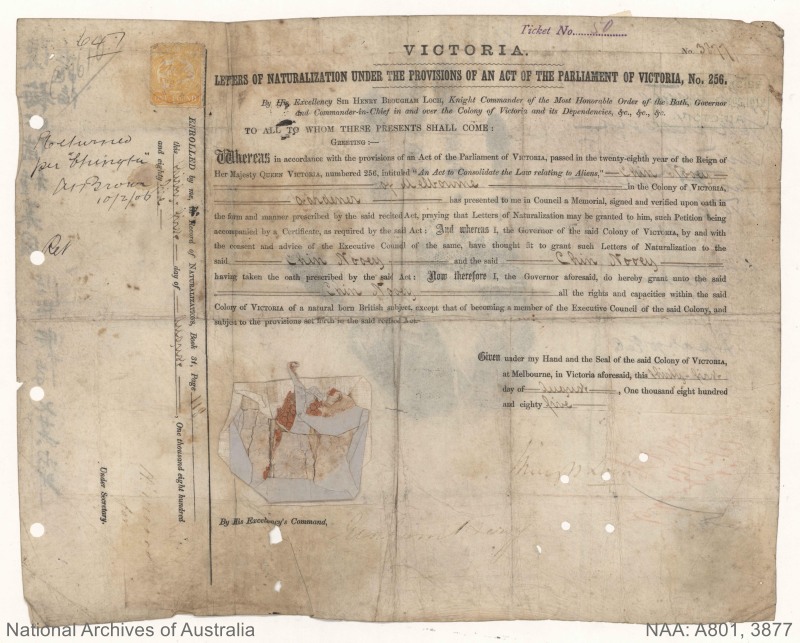 Ticket No. 50
VICTORIA.
No. 3877
LETTERS OF NATURALIZATION UNDER THE PROVISIONS OF AN ACT OF THE PARLIAMENT OF VICTORIA, No. 256.
By His Excellency SIR HENRY BROUGHAM LOCH, Knight Commander of the Most Honorable Order of the Bath, Governor
and Commander-in-Chief in and over the Colony of Victoria and its Dependencies, &c., &c., &c.
TO ALL TO WHOM THESE PRESENTS SHALL COME:
GREETING:—
Whereas in accordance with the provisions of an Act of the Parliament of VICTORIA, passed in the twenty-eighth year of the Reign of
Her Majesty QUEEN VICTORIA, numbered 256, intituled "An Act to Consolidate the Law relating to Aliens," Chin Nooey
of Melbourne in the Colony of VICTORIA,
Gardener has presented to me in Council a Memorial, signed and verified upon oath in
the form and manner prescribed by the said recited Act, praying that Letters of Naturalization may be granted to him, such Petition being
accompanied by a Certificate, as required by the said Act: And whereas I, the Governor of the said Colony of VICTORIA, by and with
the consent and advice of the Executive Council of the same, have thought fit to grant such Letters of Naturalization to the
said Chin Nooey and the said Chin Nooey
having taken the oath prescribed by the said Act: Now therefore I, the Governor aforesaid, do hereby grant unto the said
Chin Nooey all the rights and capacities within the said
Colony of VICTORIA of a natural born British subject, except that of becoming a member of the Executive Council of the said Colony, and
subject to the provisions set forth in the said recited Act.
Given under my Hand and the Seal of the said Colony of VICTORIA,
at Melbourne, in Victoria aforesaid, this
day of August, One thousand eight hundred
and eighty five
By His Excellency's Command,
ENROLLED by me, in Record of NATURALIZATIONS, Book 31, Page
this day of August, One thousand eight hundred
and eighty five
Under Secretary.
Returned
per "Chingtu"
10/2/06
National Archives of Australia
NAA: A801, 3877